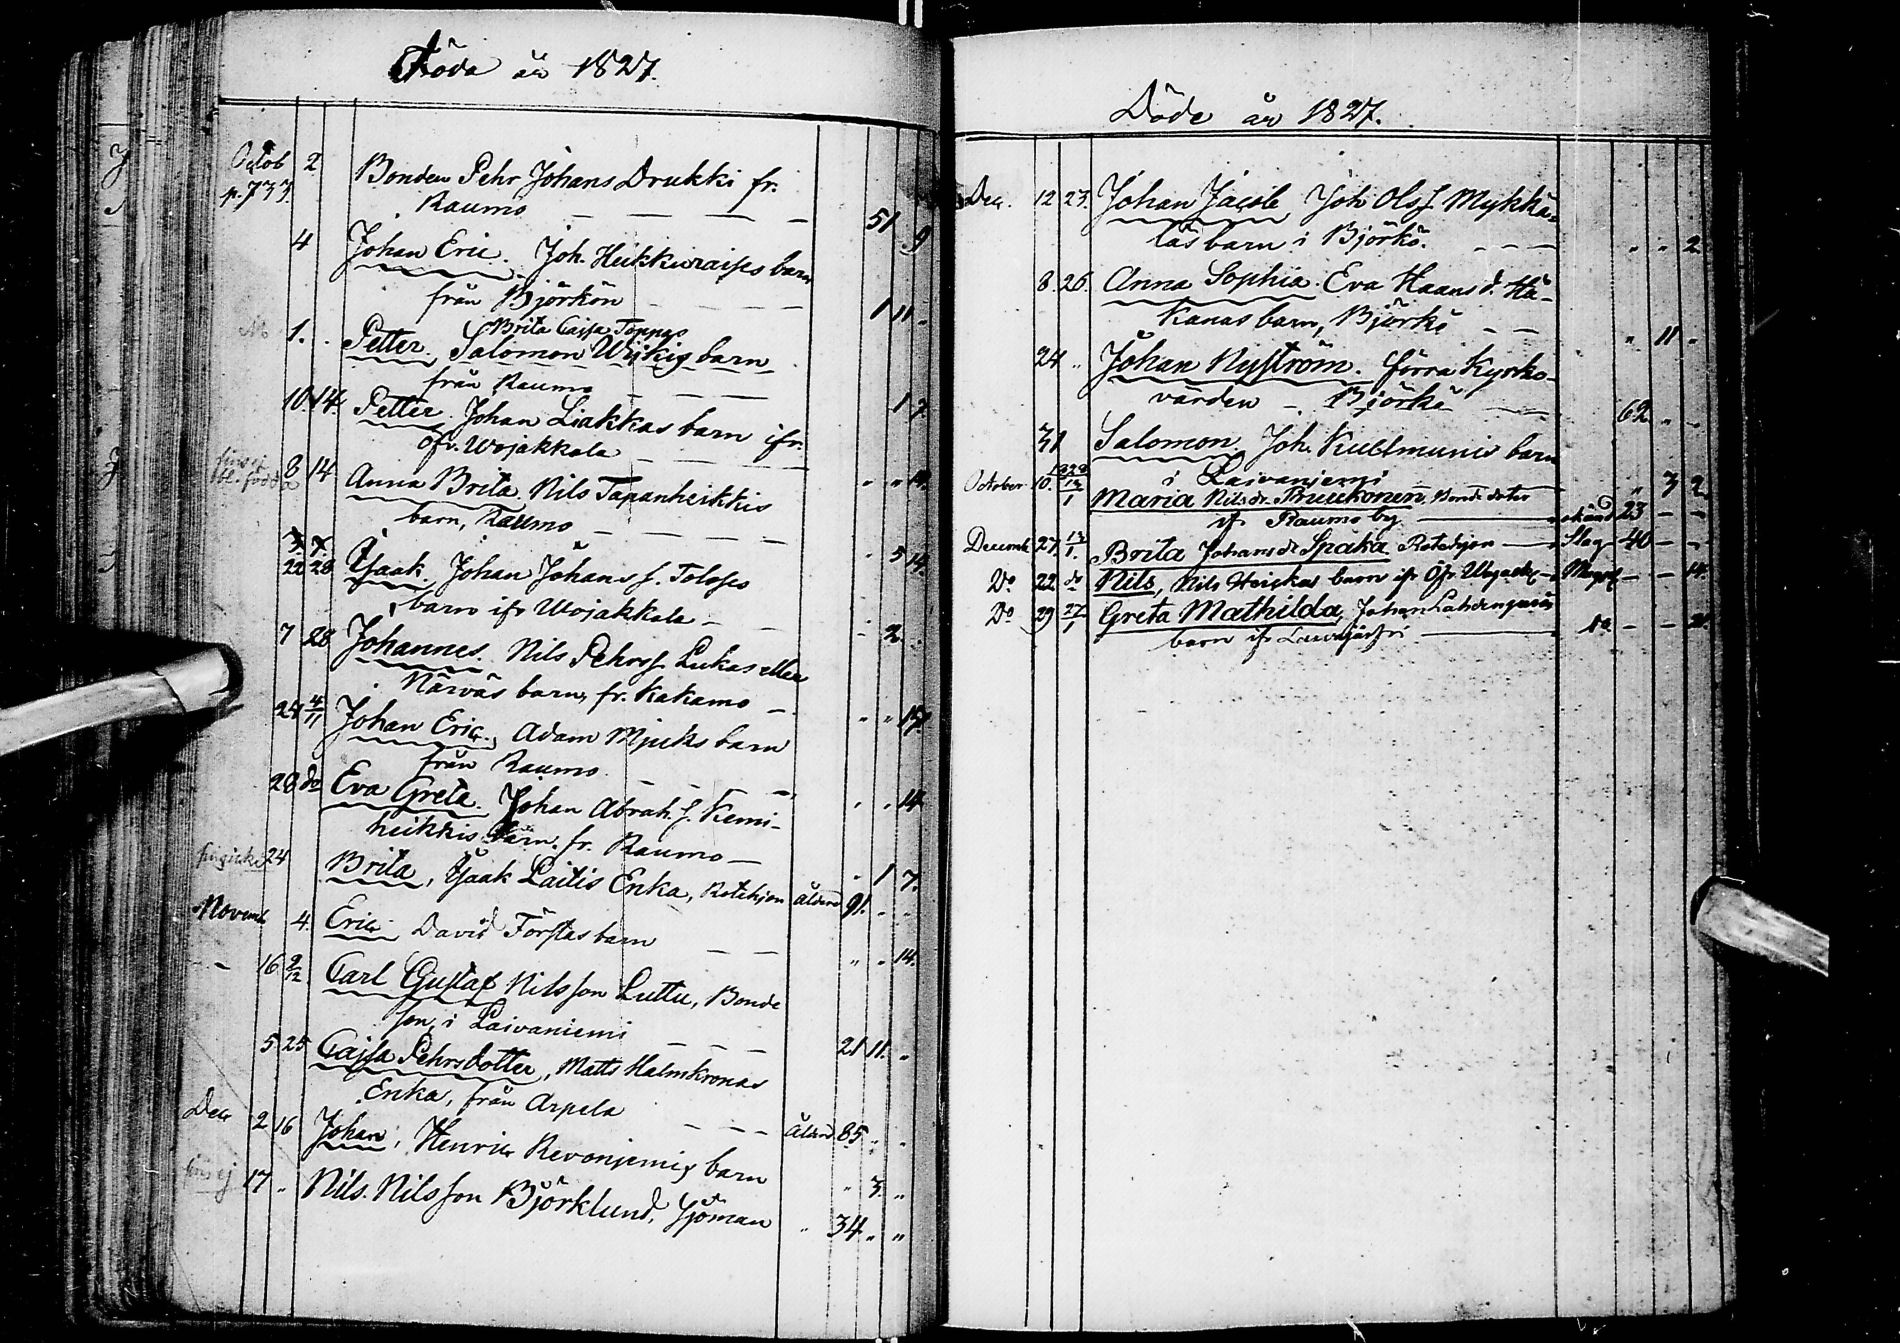 Döda år 1827.
Octob 2. Bonden Pehr Johans Drukki fr.
p. 733. Raumo — — — — 51 . 9
4 Johan Eric. Joh. Heikkuraises barn
från Björkön — — — 1 11 .
Brita Cajsa Tonnys
1. . Petter. Salomon Wijkig barn
från Raumo — — — 1 7.
10. 14. Petter. Johan Liakkas barn ifr.
Öfv. Wojakkala — — " " 14.
8 14 Anna Brita. Nils Tapanheikkis
barn, Raumo — — — . 5 14.
22 28 Isaak. Johan Johans s. Tolpes
barn ifr Wojakkala — — - 2. .
7 28 Johannes. Nils Pehrs s. Lukas eller
Närväs barn, fr. Kakamo — " " 17.
24 4/11 Johan Eric, Adam Mjuks barn
från Raumo — — — . . 14
28 do Eva Greta. Johan Abrah. s. Kemi-
heikkis barn. fr. Raumo — . 1 7.
24 Brita, Isaak Laitis Enka, Rotehjon ålderd 91. . .
Novemb 4. Eric David Förstas barn — — " . 14.
16 9/12 Carl Gustaf Nilsson Luttu, Bonde
son, i Laivaniemi — — — 21 11. .
5 25 Cajsa Pehrsdotter, Matts Halmkronas
Enka, från Arpela — — — Ålderd. 85 . .
Dec 2 16 Johan, Henric Revonjemis barn " 3. "
17 . Nils. Nilsson Björklund, Sjöman " 34 " "
Döde år 1827.
Dec. 12 23. Johan Jacob Joh Ols s. Mykkä-
läs barn i Björkö. — — — " " 2
8. 26. Anna Sophia. Eva Haans d. Hä-
kanas barn, Björkö — — " 11 .
24 " Johan Nyström. förra Kyrko-
värden — Björkö — 62 . .
31 Salomon, Joh. Kultmunis barn
i Laivanjemi — " 3 2
October 10. 1828 13/1 Maria Nilsdr. Pruukonen, Bonde dotter
ifr Raumo by — okänd 23 — —
Decemb 27. 13/1. Brita Johansdr Spaka Rotehjon — Slag 40 — —
Do 22 do Nils, Nils Heickas barn ifr Öfr Wojack. — — — 14.
Do 29 27/1 Greta Mathilda, Johan
barn ifr — do — — 21.